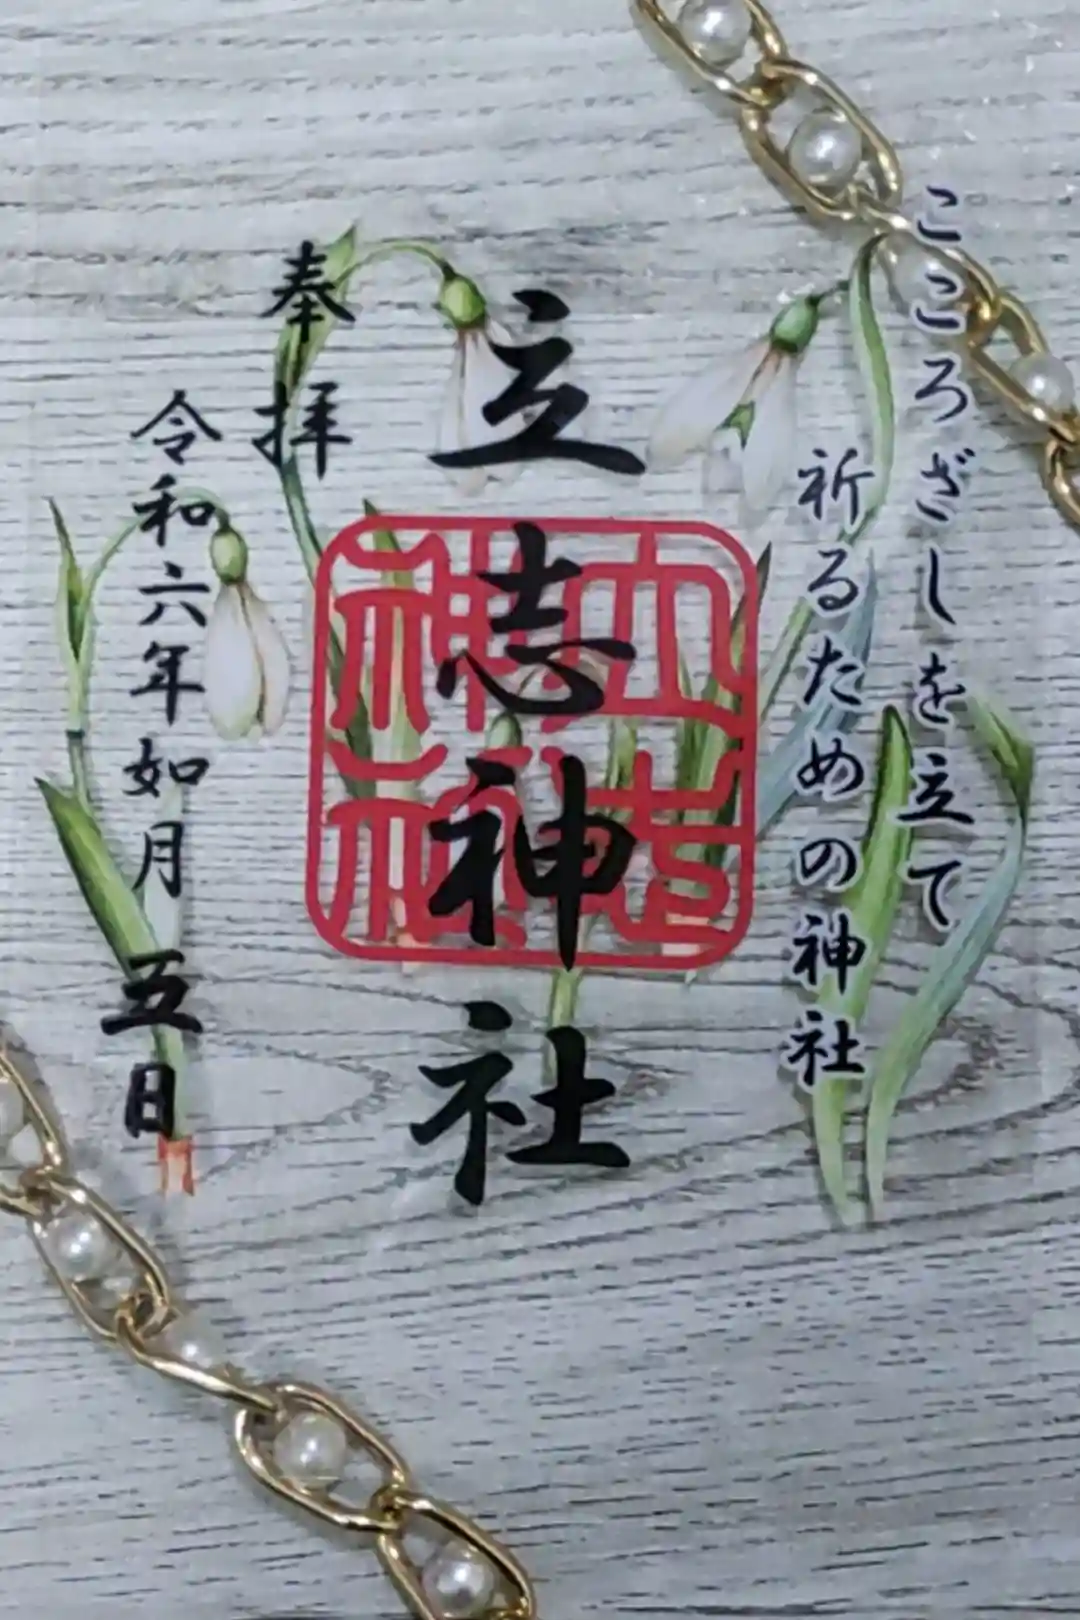 こころざしを立て
祈るための神社
立志神社
立志神社
奉拝
令和六年如月五日